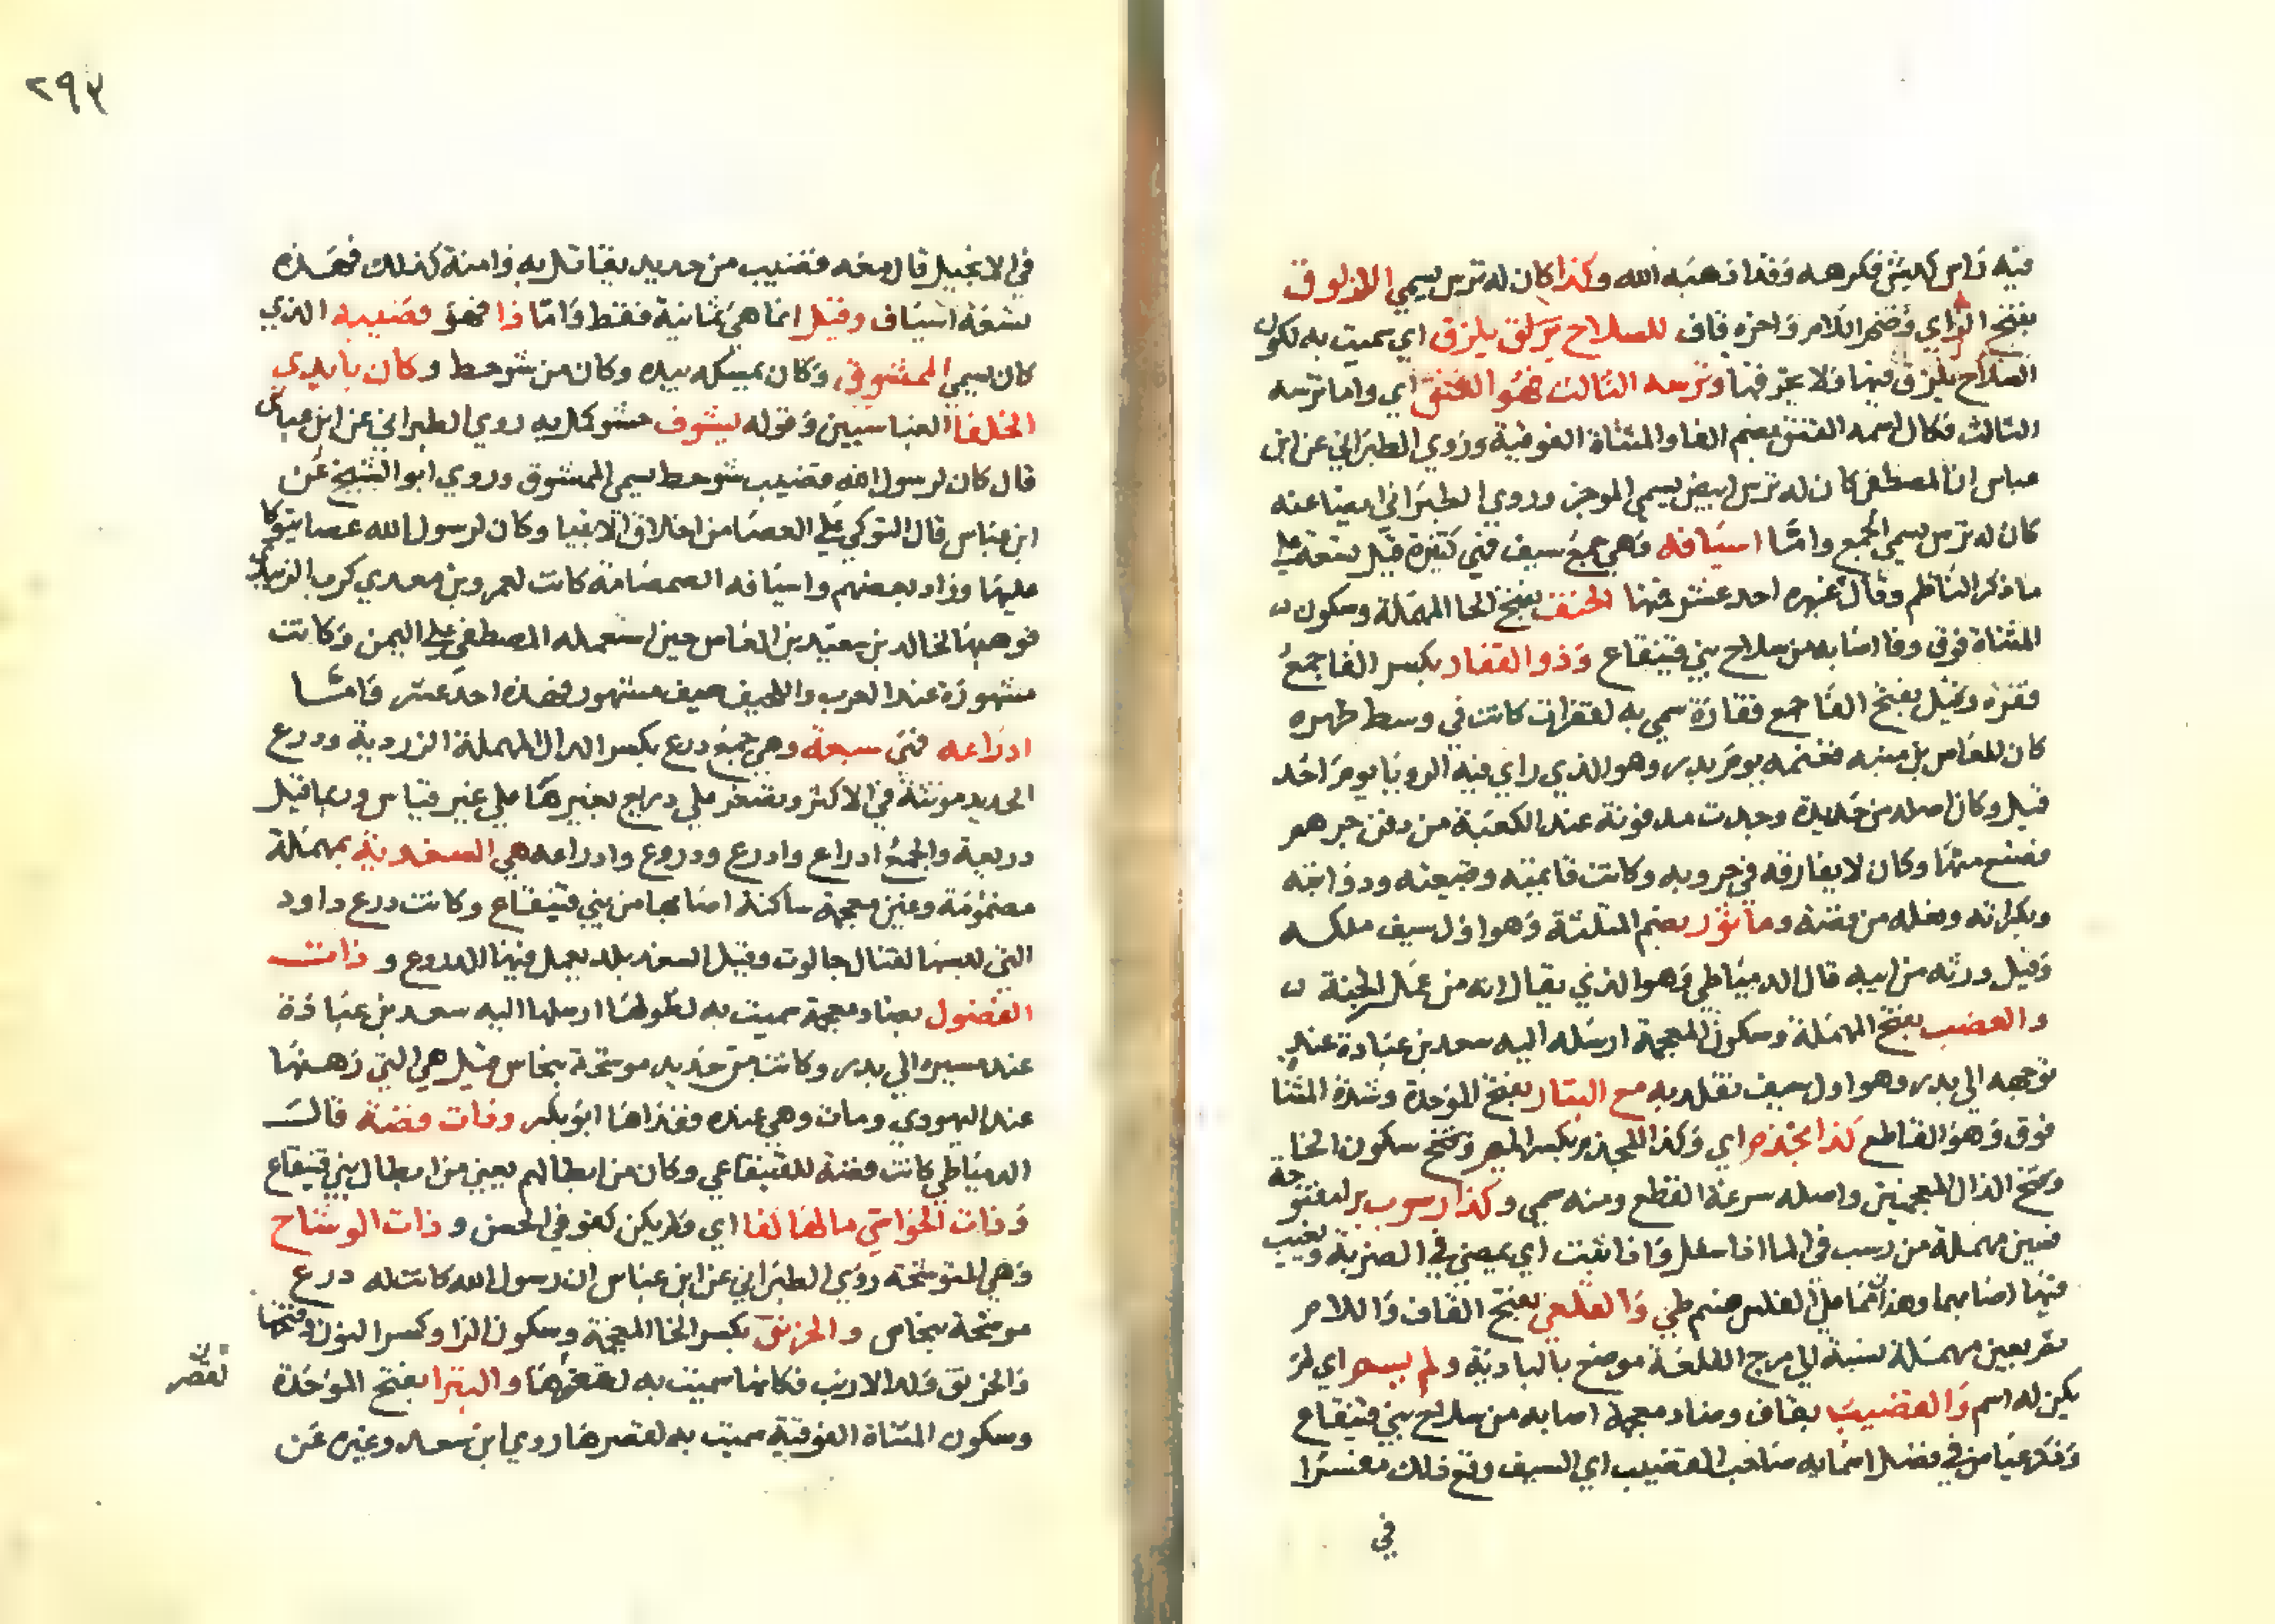 فيه راس كبش فكرهه وقد اذهبه الله وكذا كان له ترس يسمي الزلوق
بفتح الزاي وضم اللام واخره قاف للسلاح يزلق يلزق اي سميت به لكون
السلاح يلزق فيها فلا يخرقها وترسه الثالث فهو الفتق اي واما ترسه
الثالث فكان اسمه الفتق بضم الفا والمثناة الفوقية وروي الطبراني عن ابن
عباس ان المصطفي كان له ترس ابيض يسمي الموجز وروي الطبراني ايضا عنه
كان له ترس يسمي الجمع واما اسيافه وهي جمع سيف فهي كثيرة قيل تسعة علي
ما ذكر الناظم وقال غيره احد عشر فمنها الحتف بفتح الحا المهملة وسكون
المثناة فوق وفا اصابه من سلاح بني قينقاع وذو الفقار بكسر الفا جمع
فقرة وقيل بفتح الفا جمع فقارة سمي به لفقرات كانت في وسط ظهره
كان للعاص بن منبه فغنمه يوم بدر وهو الذي راي فيه الرويا يوم احد
قيل وكان اصله من حديدة وجدت مدفونة عند الكعبة من دفن جرهم
فصنع منها وكان لا يفارقه في حروبه وكانت قايمته وقبيعته وذوابته
وبكراته ونعله من فضة وماثور بضم المثلثة وهو اول سيف ملكه
وقيل ورثه من ابيه قال الدمياطي وهو الذي يقال انه من عمل الجن
والعضب بفتح المهملة وسكون المعجمة ارسله اليه سعد بن عبادة عند
توجهه الي بدر وهو اول سيف تقلد به مع البتار بفتح الموحدة وشدة المثنا
فوق وهو القاطع كذا مخذم اي وكذا المخذم بكسر الميم وفتح سكون الخا
وفتح الذال المعجمتين واصله سرعة القطع ومنه سمي وكذا رسوب برا مفتوحة
فسين مهملة من رسب في الما اذا سفل واذا ثبت اي يمضي في الضربة ويغيب
فيها اصابهما وهذان مما علي الفلس صنم طي والقلعي بفتح القاف واللام
ثم بعين مهملة نسبة الي مرج القلعة موضع بالبادية ولم يسم اي لم
يكن له اسم والقضيب بقاف وضاد معجمة اصابه من سلاح بني قينقاع
وذكر عياض في فضل اسمايه صاحب القضيب اي السيف وقع ذلك مفسرا
في
٢٩٢
في الانجيل قال معه قضيب من حديد يقاتل به وامته كذلك فهذه
تسعة اسياف وقيل انما هي ثمانية فقط واما ذا فهو قضيبه الذي
كان يسمي الممشوق وكان يمسكه بيده وكان من شوحط وكان بايدي
الخلفا العباسيين وقوله يشوف حشو كمل به روي الطبراني عن ابن عباس
قال كان لرسول الله قضيب شوحط يسمي الممشوق وروي ابو الشيخ عن
ابن عباس قال التوكي علي العصا من اخلاق الانبيا وكان لرسول الله عصا يتوكا
عليها وزاد بعضهم واسيافه الصمصامة كانت لعمرو بن معدي كرب الزبيدي
فوهبها لخالد بن سعيد بن العاص حين استعمله المصطفي علي اليمن وكانت
مشهورة عند العرب واللحيف سيف مشهور فهذه احد عشر فاما
ادراعه فهي سبعة وهي جمع درع بكسر الدال المهملة الزردية ودرع
الحديد مونثة في الاكثر وتصغر علي دريع بغيرها علي غير قياس وربما قيل
دريعة والجمع ادراع وادرع ودروع وادراعه هي السغدية بمهملة
مضمومة وغين معجمة ساكنة اصابها من بني قينقاع وكانت درع داود
التي لبسها لقتال جالوت وقيل السغد بلد يعمل فيها الدروع وذات
الفضول بضاد معجمة سميت به لطولها ارسلها اليه سعد بن عبادة
عند مسيره الي بدر وكانت من حديد موشحة بنحاس قيل هي التي رهنها
عند اليهودي ومات وهي عنده ففداها ابو بكر وذات فضة قال
الدمياطي كانت فضة للقينقاعي وكان من ابطالهم يعني من ابطال بني قينقاع
وذات الحواشي مالها كفا اي ولم يكن كفو في الحسن وذات الوشاح
وهي المتوشحة روي الطبراني عن ابن عباس ان رسول الله كانت له درع
موشحة بنحاس والخرنق بكسر الخا المعجمة وسكون الرا وكسر النون وفتحها
والخرنق ولد الارنب فكانها سميت به لصغرها والبترا بفتح الموحدة
وسكون المثناة الفوقية سميت به لقصرها روي ابن سعد وغيره عن